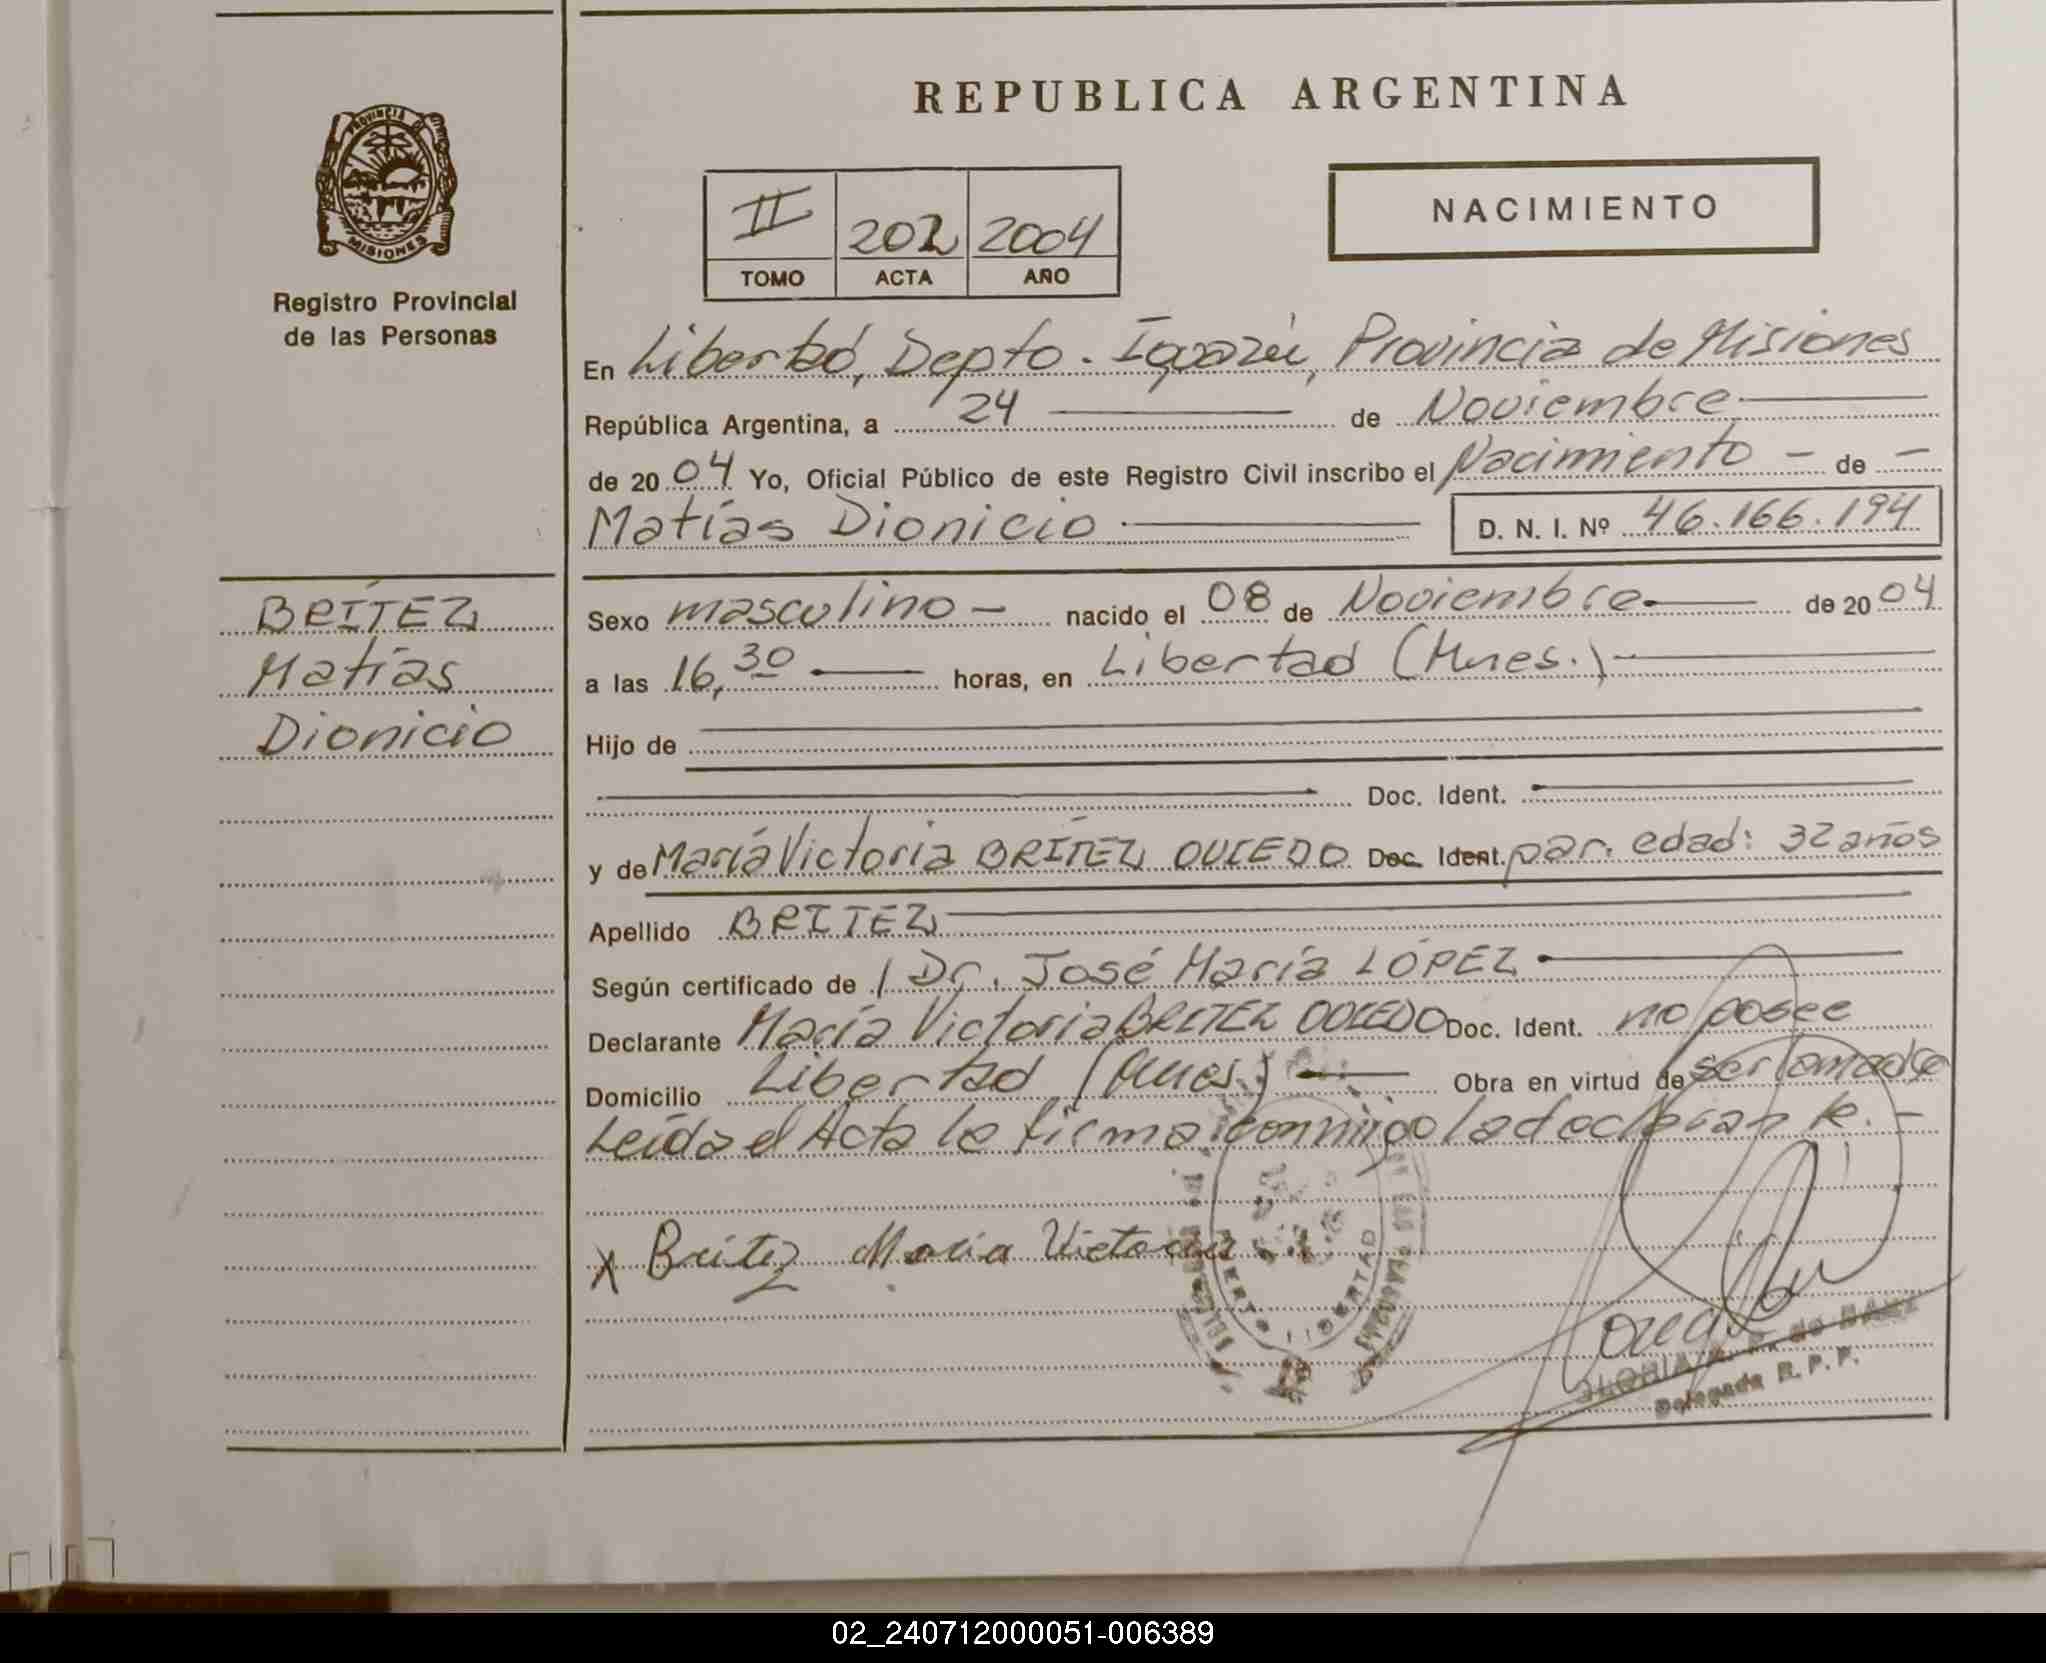 REPUBLICA ARGENTINA
PROVINCIA DE
MISIONES
Registro Provincial
de las Personas
II 202 2004
TOMO ACTA AÑO
NACIMIENTO
En Libertad, Depto. Iguazú, Provincia de Misiones
República Argentina, a 24 de Noviembre
de 2004 Yo, Oficial Público de este Registro Civil inscribo el Nacimiento - de -
Matías Dionicio D. N. I. Nº 46.166.194
BRÍTEZ
Matías
Dionicio
Sexo masculino - nacido el 08 de Noviembre de 2004
a las 16,30 horas, en Libertad (Mnes.)
Hijo de
Doc. Ident.
y de María Victoria BRÍTEZ OVIEDO Doc. Ident. par. edad: 32 años
Apellido BRITEZ
Según certificado de Dr. José María LÓPEZ
Declarante María Victoria BRITEZ OVIEDO Doc. Ident. no posee
Domicilio Libertad (Mnes.) Obra en virtud de ser la madre
Leída el Acta la firma conmigo la declarante. -
X Britez Maria Victoria
PUERTO LIBERTAD
GLORIA de
Delegada R. P. P.
02_240712000051-006389